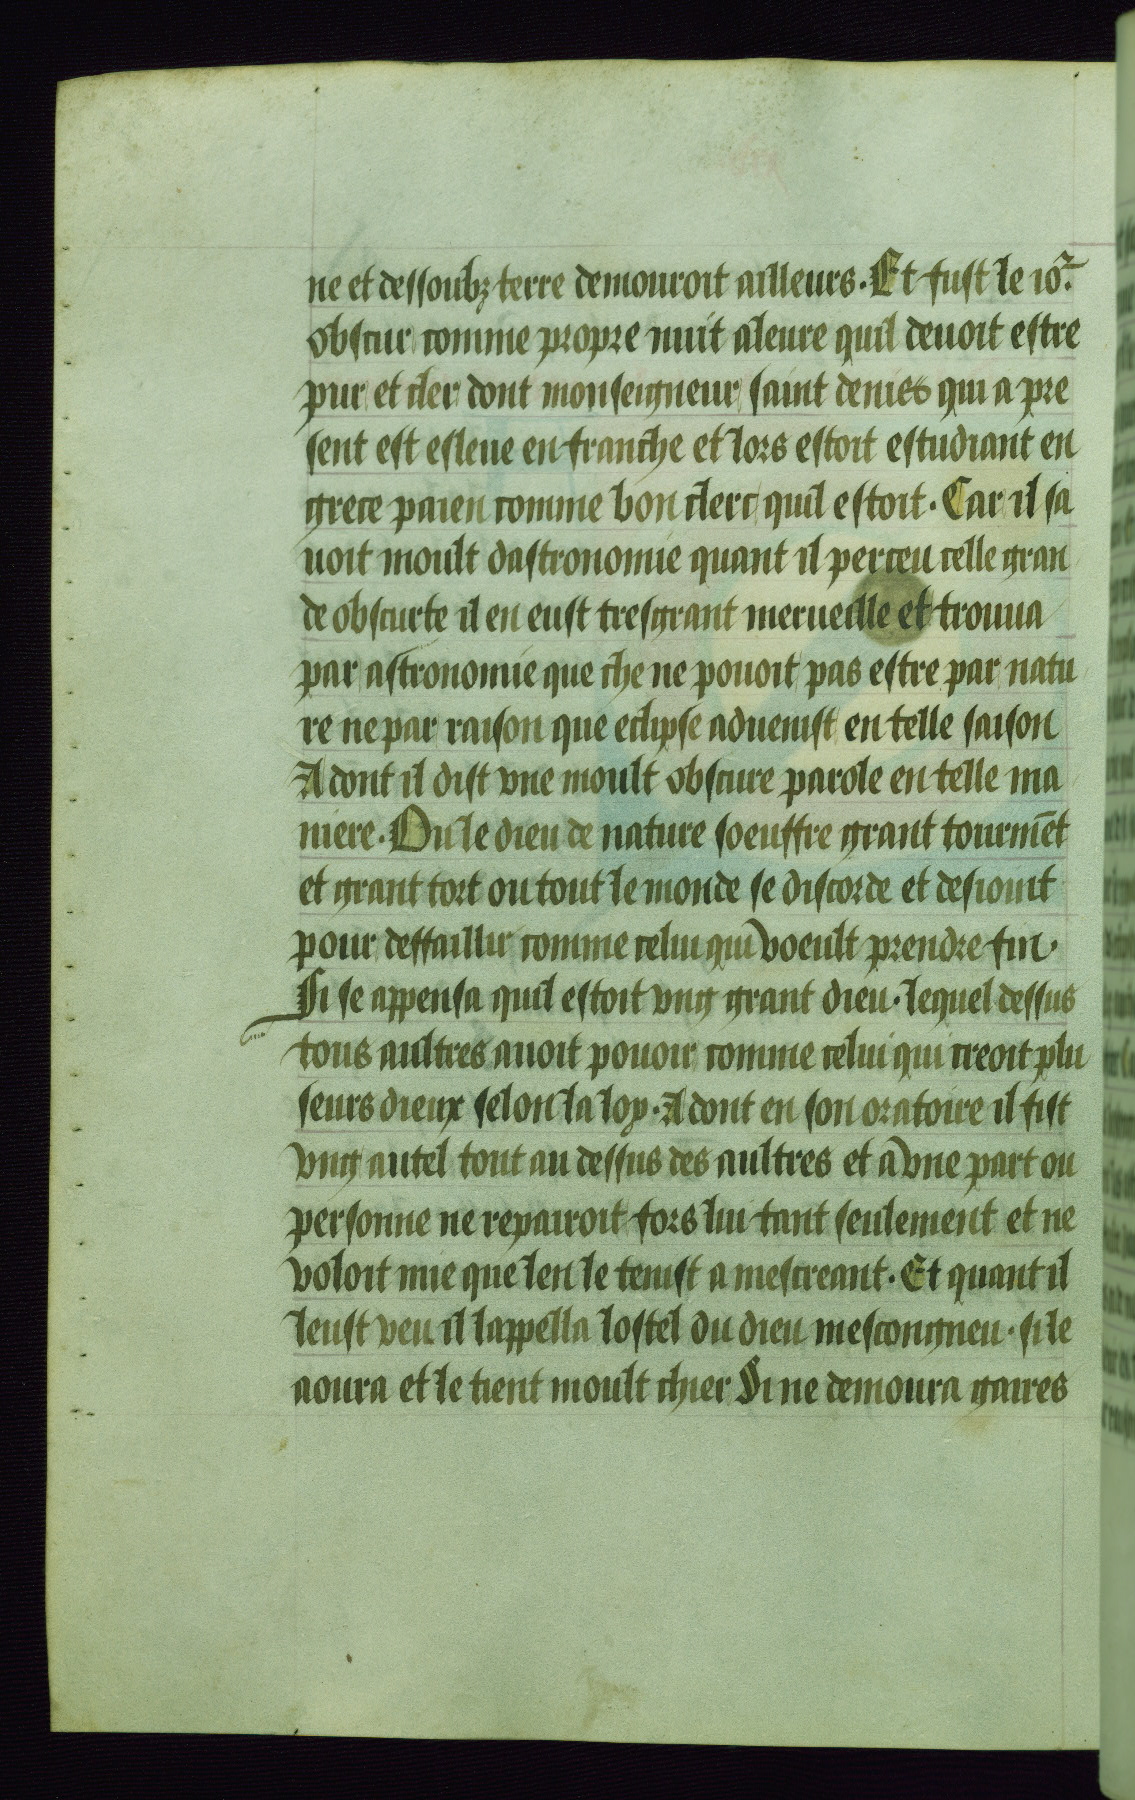 ne et dessoubz terre demouroit ailleurs. Et fust le io.r
obscur comme propre nuit aleure quil deuoit estre
pur et cler dont monseigneur saint denies qui a pre
sent est esleue en franche et lors estoit estudiant en
grece paien comme bon clerc quil estoit. Car il sa
uoit moult dastronomie quant il perceu celle gran
de obscurte il en eust tresgrant merueille et trouua
par astronomie que che ne pouoit pas estre par natu
re ne par raison que eclipse aduenist en telle saison
Adont il dist vne moult obscure parole en telle ma
niere. Ou le dieu de nature soeuffre grant tourmēt
et grant tort ou tout le monde se discorde et desioint
pour deffaillir comme celui qui voeult prendre fin.
Si se appensa quil estoit vng grant dieu. lequel dessus
tous aultres auoit pouoir comme celui qui creoit plu
seurs dieux selon la loy. Adont en son oratoire il fist
vng autel tout au dessus des aultres et a vne part ou
personne ne repairoit fors lui tant seulement et ne
voloit mie que len le tenist a mescreant. Et quant il
leust veu il lappella lostel du dieu mescongneu. si le
aoura et le tient moult chier Si ne demoura gaires